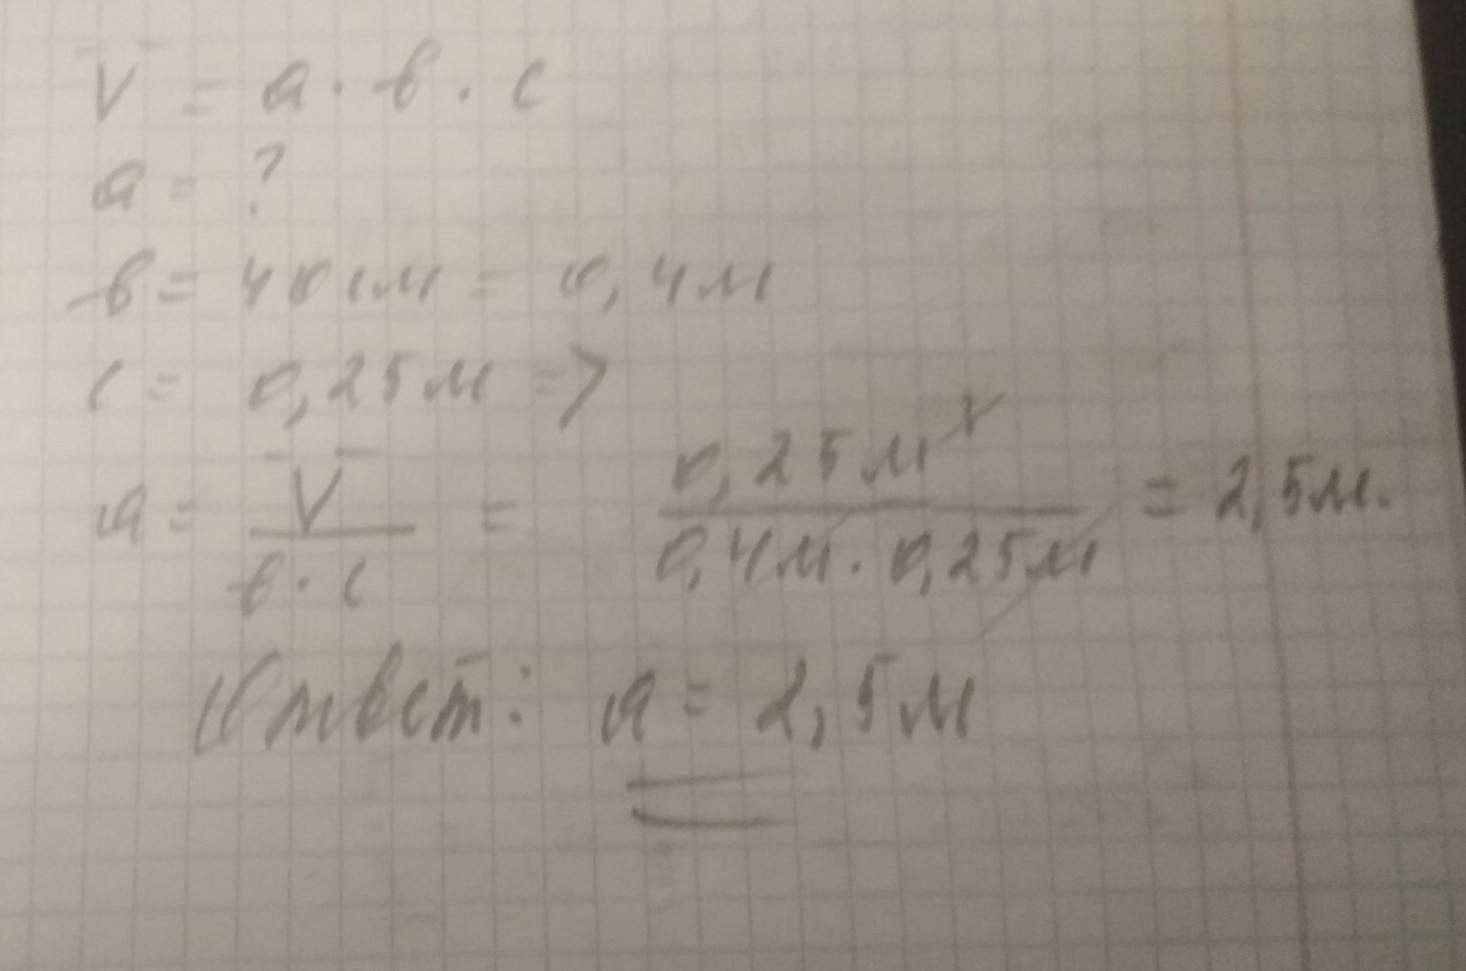 V = a · в · c
a = ?
в = 40 см = 0,4 м
c = 0,25 м =>
a = V / в · c = 0,25 м³ / 0,4 м · 0,25 м = 2,5 м.
Ответ: a = 2,5 м